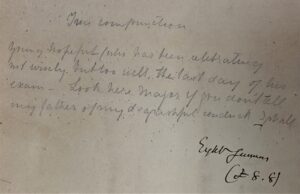 True compunction
Young hopeful who has been celebrating
not wisely, but too well, the last day of his
exam — Look here Major if you don't tell
my father of my disgraceful conduck I shall
(£8.8)